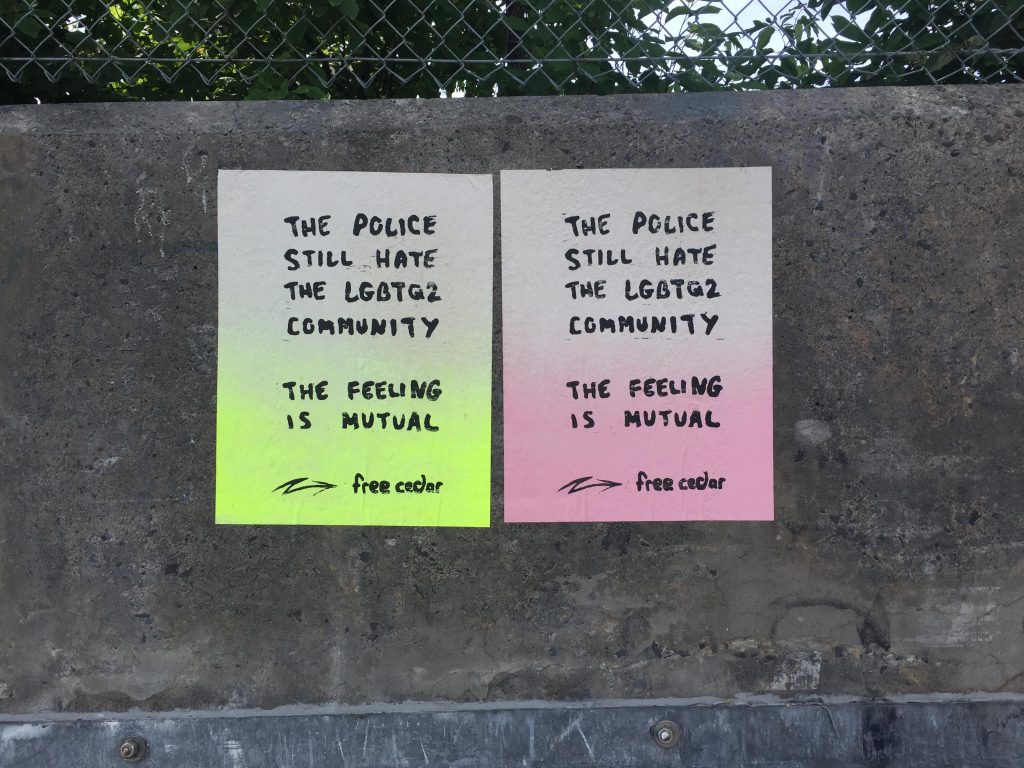 THE POLICE
STILL HATE
THE LGBTQ2
COMMUNITY
THE FEELING
IS MUTUAL
free cedar
THE POLICE
STILL HATE
THE LGBTQ2
COMMUNITY
THE FEELING
IS MUTUAL
free cedar